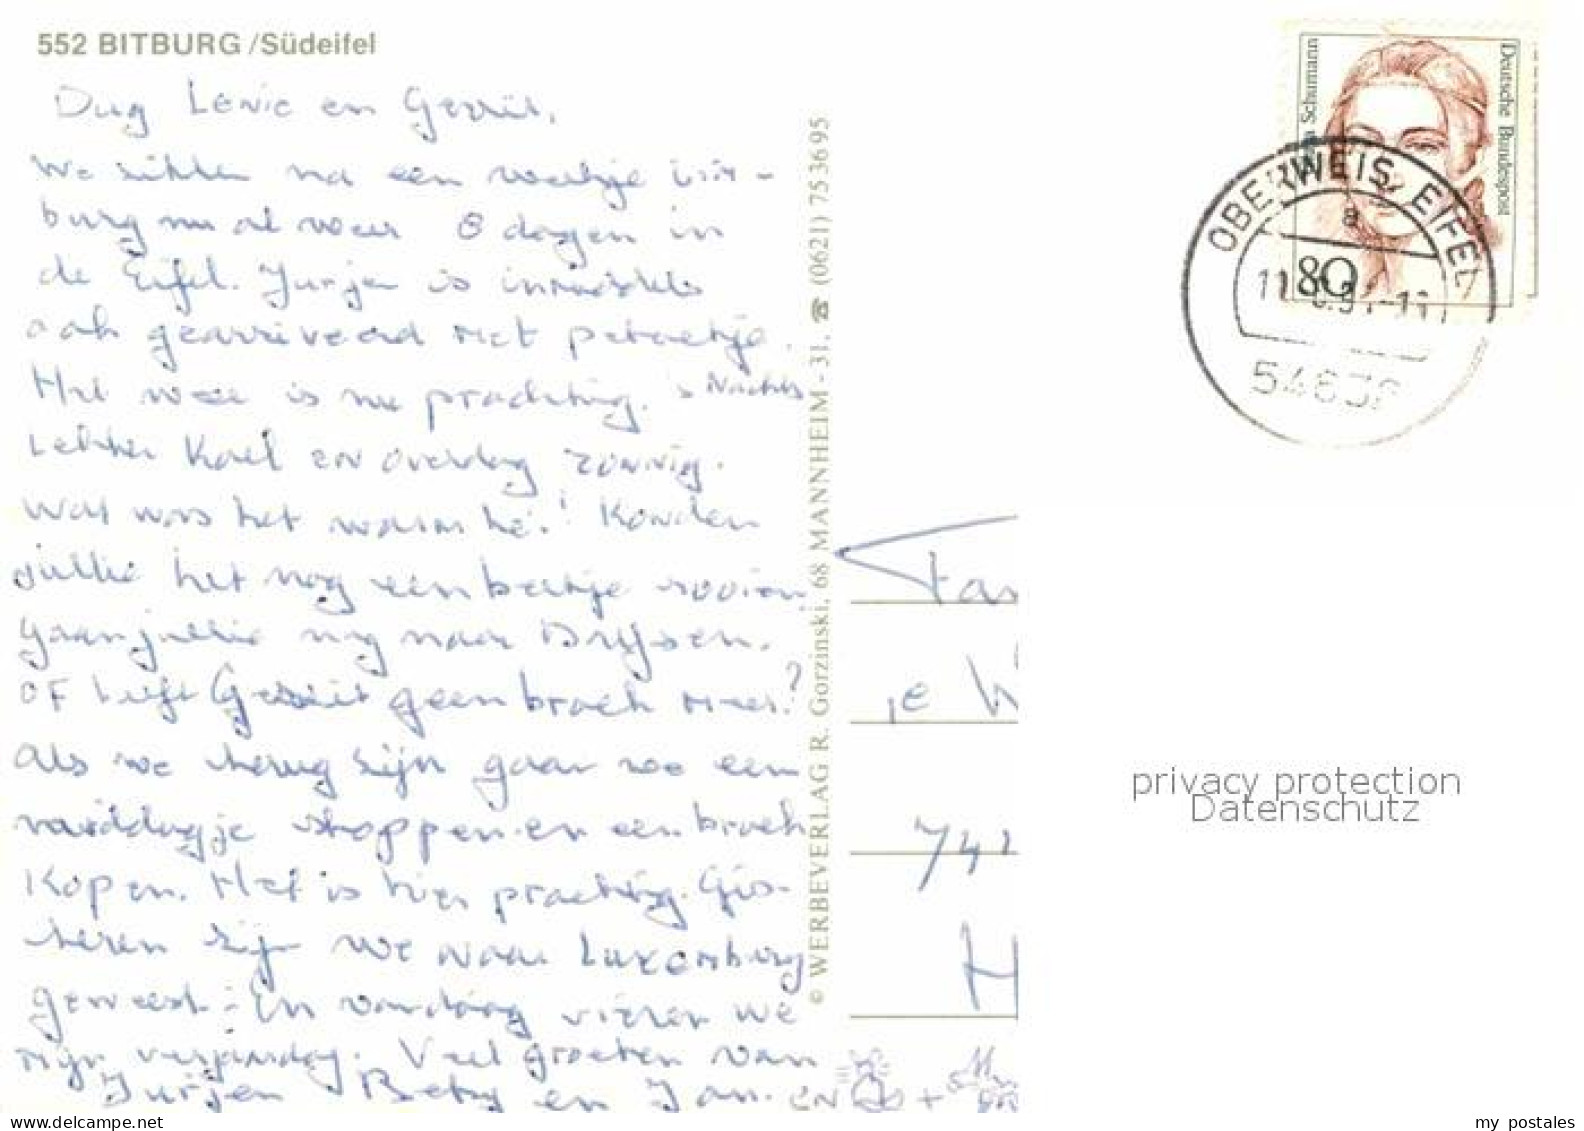 552 BITBURG /Südeifel
Dag Lenie en Gerrit.
We zitten na een weekje
burg nu al weer 8 dagen in
de Eifel. Jurjen is inmiddels
ook gearriveerd met
Het weer is nu prachtig. 's Nachts
lekker koel en overdag zonnig.
Wat was het warm hè.! Konden
jullie het nog een beetje rooien
Gaan jullie nog naar
OF heeft Gerrit geen broek meer?
Als we terug zijn gaan we een
middagje shoppen en een broek
kopen. Het is hier prachtig. Gis-
teren zijn we naar Luxemburg
geweest. En vandaag vieren we
mijn verjaardag. Veel groeten van
Jurjen Betsy en Jan. en +
© WERBEVERLAG R. Gorzinski, 68 MANNHEIM - 31, ☎ (0621) 75 36 95
Fa
e
74
H
Schumann
Deutsche Bundespost
80
OBERWEIS, EIFEL
a
11
privacy protection
Datenschutz
www.delcampe.net
my postales